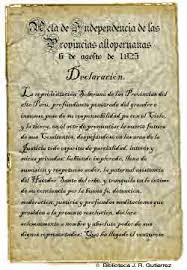 Acta de Independencia de las
Provincias altoperuanas
6 de agosto de 1825
Declaración.
La representación Soberana de las Provincias del
alto Perú, profundamente penetrada del grandor e
inmenso peso de su responsabilidad para con el Cielo,
y la tierra, en el acto de pronunciar la suerte futura
de sus Comitentes, despojándose en las aras de la
Justicia todo espíritu de parcialidad, interés y
miras privadas; habiendo implorado, llena de
sumisión y respetuoso ardor, la paternal asistencia
del Hacedor Santo del orbe, y tranquila en lo íntimo
de su conciencia por la buena fe, detención,
moderación, justicia y profundas meditaciones que
presiden a la presente resolución, declara
solemnemente a nombre y absoluto poder de sus
dignos representados: Que ha llegado el venturoso
© Biblioteca J. R. Gutierrez